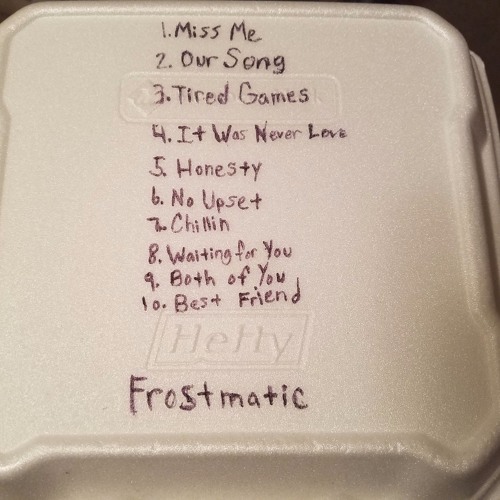 1. Miss Me
2. Our Song
3. Tired Games
4. It Was Never Love
5. Honesty
6. No Upset
7. Chillin
8. Waiting for You
9. Both of You
10. Best Friend
Hefty
Frostmatic